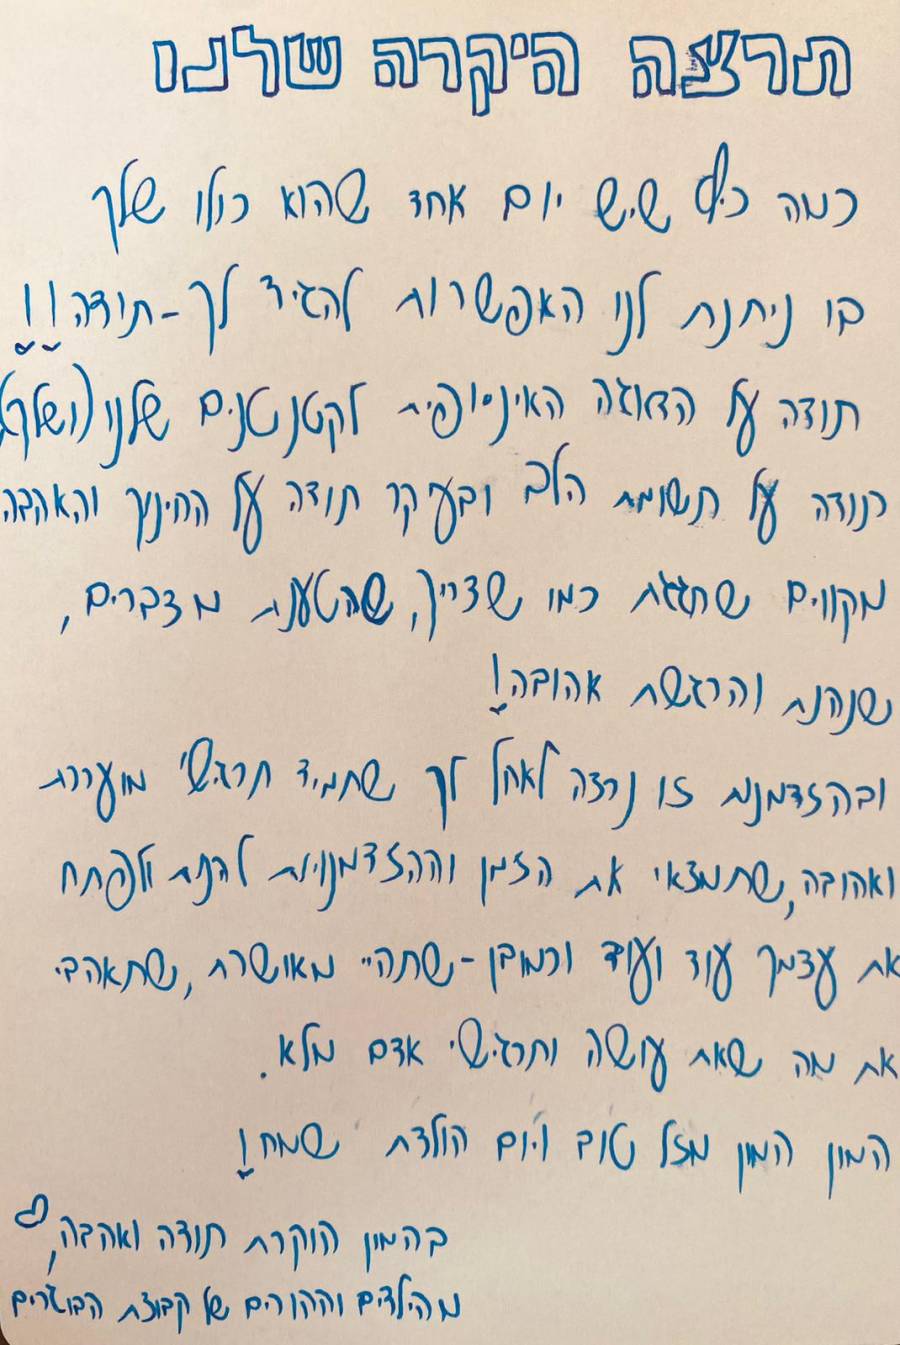 תרצה היקרה שלנו
כמה כיף שיש יום אחד שהוא כולו שלך
בו ניתנת לנו האפשרות להגיד לך - תודה!!
תודה על הדאגה האינסופית לקטנטנים שלנו (ושלך)
תודה על תשומת הלב ובעיקר תודה על החינוך והאהבה
מקווים שחגגת כמו שצריך, שהטענת מצברים,
שנהנת והרגשת אהובה!
ובהזדמנות זו נרצה לאחל לך שתמיד תרגישי מוערכת
ואהובה, שתמצאי את הזמן וההזדמנויות להנות ולפתח
את עצמך עוד ועוד וכמובן - שתהיי מאושרת, שתאהבי
את מה שאת עושה ותרגישי אדם מלא.
המון המון מזל טוב ויום הולדת שמח!
בהמון הוקרת תודה ואהבה,
מהילדים וההורים של קבוצת הבוגרים